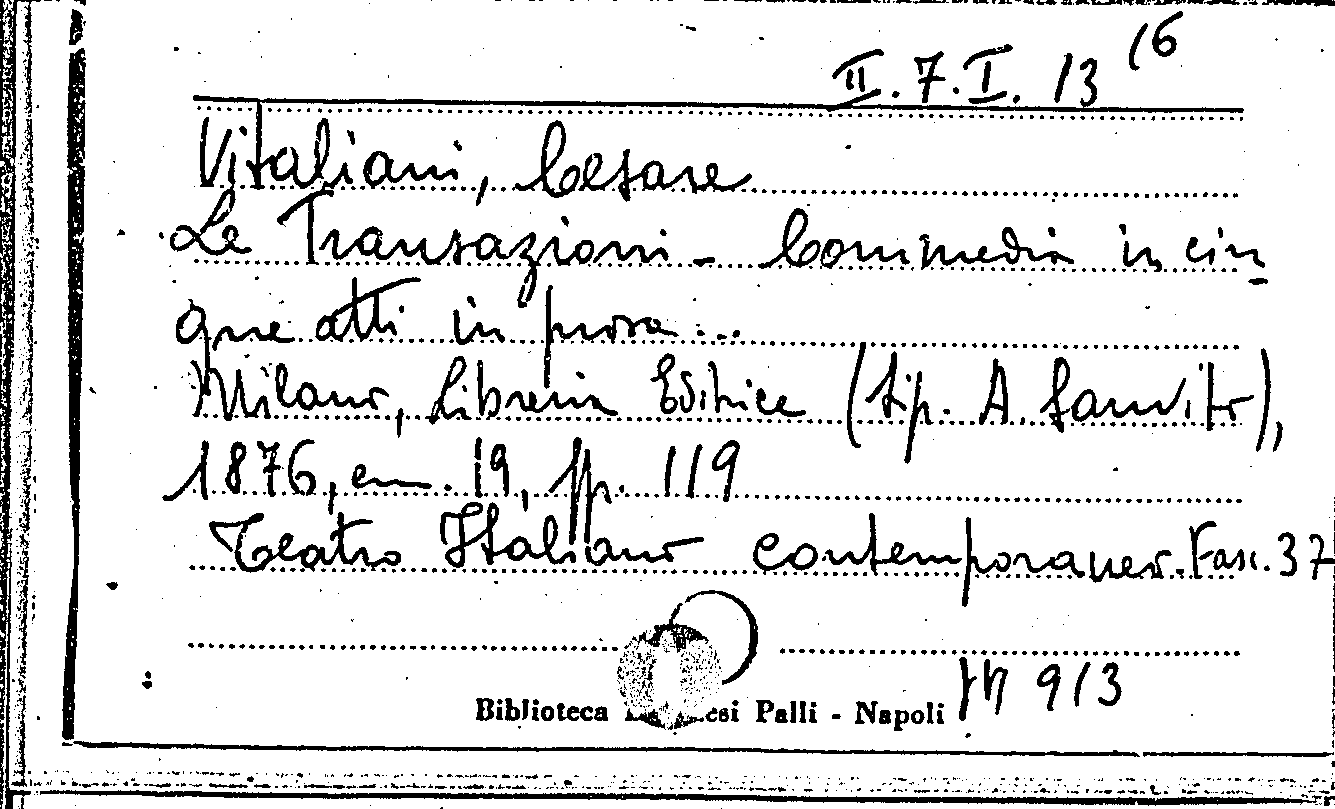 II.7.I. 13 (6
Vitaliani, Cesare
Le Transazioni - Commedia in cin
que atti in prosa...
Milano, Libreria Editrice (tip. A. Sanvito),
1876, cm. 19, pp. 119
Teatro Italiano contemporaneo. Fasc. 37
Biblioteca esi Palli - Napoli
913